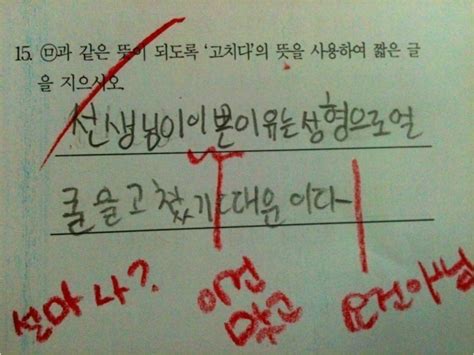 15. ㅁ과 같은 뜻이 되도록 '고치다'의 뜻을 사용하여 짧은 글
을 지으시오.
선생님이이쁜이유는성형으로얼
굴을고쳤기때문이다
설마 나? 이건 맞고 요건아님